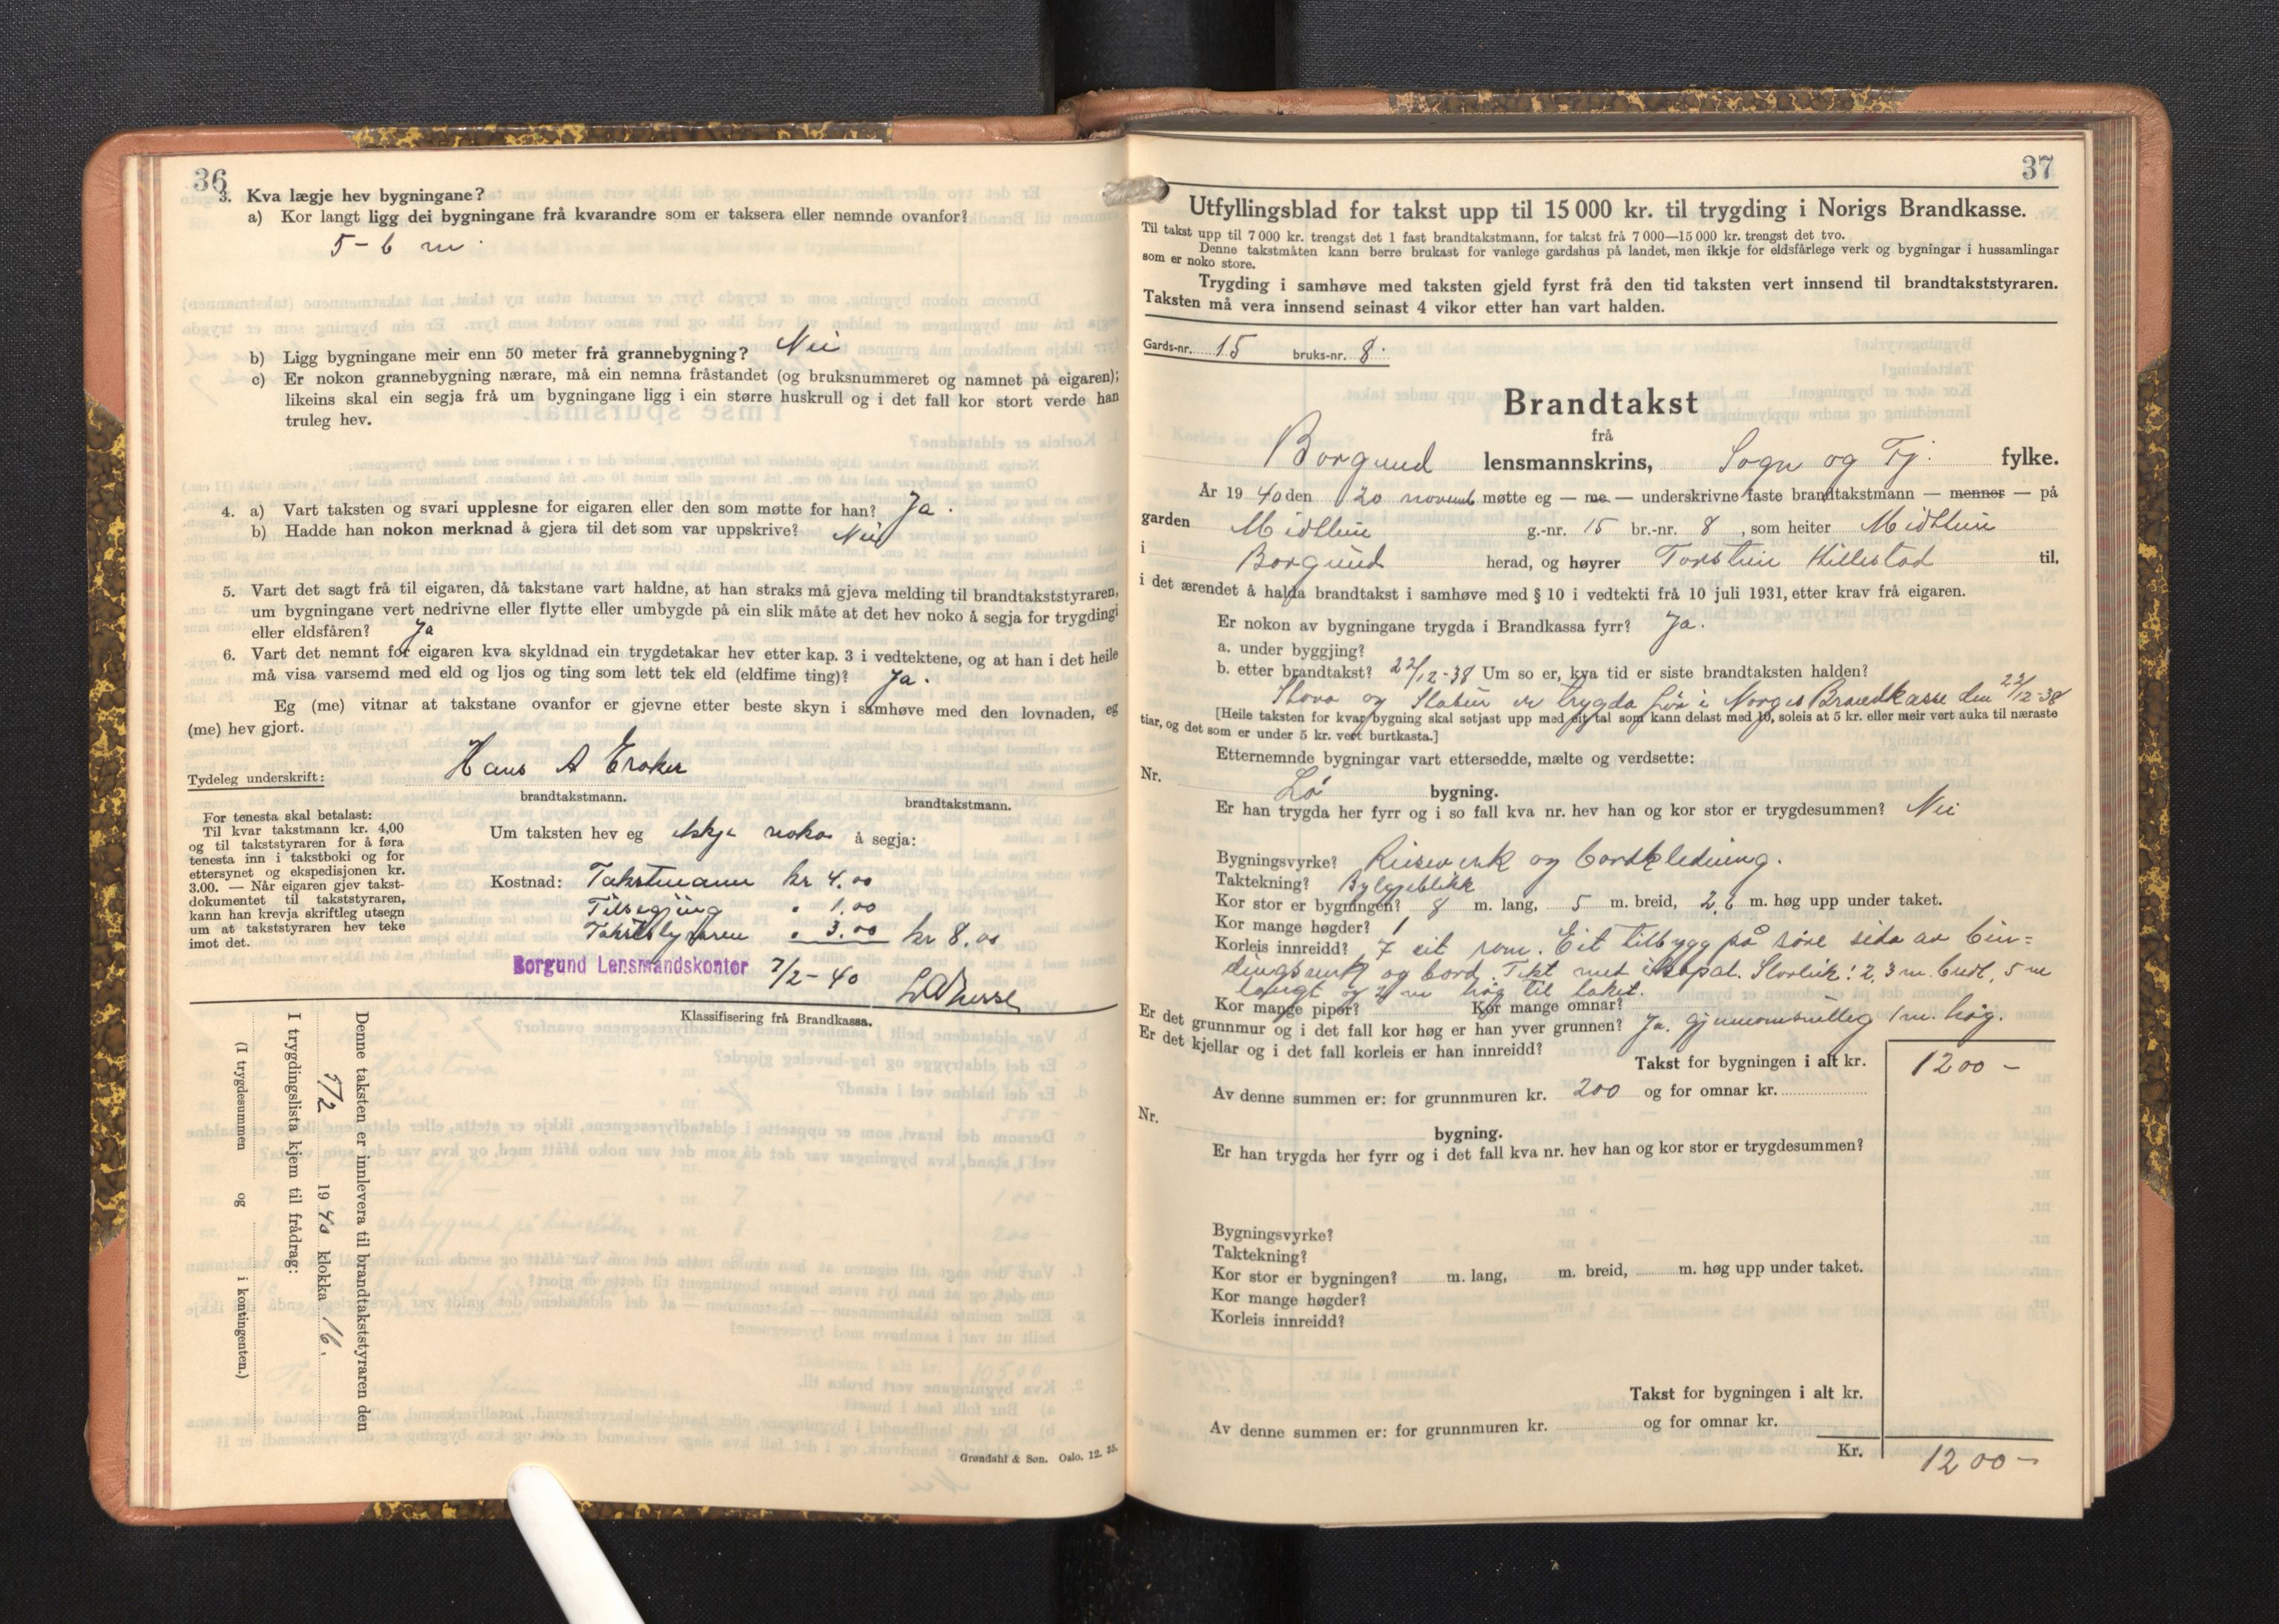 36
3. Kva lægje hev bygningane?
a) Kor langt ligg dei bygningane frå kvarandre som er taksera eller nemnde ovanfor?
5-6 m.
b) Ligg bygningane meir enn 50 meter frå grannebygning? Nei
c) Er nokon grannebygning nærare, må ein nemna fråstandet (og bruksnummeret og namnet på eigaren);
likeins skal ein segja frå um bygningane ligg i ein større huskrull og i det fall kor stort verde han
truleg hev.
4. a) Vart taksten og svari upplesne for eigaren eller den som møtte for han? Ja.
b) Hadde han nokon merknad å gjera til det som var uppskrive? Nei
5. Vart det sagt frå til eigaren, då takstane vart haldne, at han straks må gjeva melding til brandtakststyraren,
um bygningane vert nedrivne eller flytte eller umbygde på ein slik måte at det hev noko å segja for trygdingi
eller eldsfåren? Ja
6. Vart det nemnt for eigaren kva skyldnad ein trygdetakar hev etter kap. 3 i vedtektene, og at han i det heile
må visa varsemd med eld og ljos og ting som lett tek eld (eldfime ting)? Ja.
Eg (me) vitnar at takstane ovanfor er gjevne etter beste skyn i samhøve med den lovnaden, eg
(me) hev gjort.
Tydeleg underskrift: Hans A Eraker
brandtakstmann. brandtakstmann.
For tenesta skal betalast:
Til kvar takstmann kr. 4,00
og til takststyraren for å føra
tenesta inn i takstboki og for
ettersynet og ekspedisjonen kr.
3.00. — Når eigaren gjev takst-
dokumentet til takststyraren,
kann han krevja skriftleg utsegn
um at takststyraren hev teke
imot det.
Um taksten hev eg ikkje noko å segja:
Kostnad: Takstmann kr 4.00
Tilsegjing " 1.00
Takststyraren " 3.00 kr 8.00
Borgund Lensmandskontor 7/2-40
Klassifisering frå Brandkassa.
Denne taksten er innlevera til brandtakststyraren den
5/2 1940 klokka 16.
I trygdingslista kjem til frådrag:
(I trygdesummen og i kontingenten.)
Grøndahl & Søn. Oslo. 12. 35.
37
Utfyllingsblad for takst upp til 15 000 kr. til trygding i Norigs Brandkasse.
Til takst upp til 7 000 kr. trengst det 1 fast brandtakstmann, for takst frå 7 000—15 000 kr. trengst det tvo.
Denne takstmåten kann berre brukast for vanlege gardshus på landet, men ikkje for eldsfårlege verk og bygningar i hussamlingar
som er noko store.
Trygding i samhøve med taksten gjeld fyrst frå den tid taksten vert innsend til brandtakststyraren.
Taksten må vera innsend seinast 4 vikor etter han vart halden.
Gards-nr. 15 bruks-nr. 8.
Brandtakst
frå
Borgund lensmannskrins, Sogn og Fj. fylke.
År 1940 den 20 novemb møtte eg — me — underskrivne faste brandtakstmann — menner — på
garden Midtlien g.-nr. 15 br.-nr. 8, som heiter Midtlien
i Borgund herad, og høyrer Torstein Hillestad til,
i det ærendet å halda brandtakst i samhøve med § 10 i vedtekti frå 10 juli 1931, etter krav frå eigaren.
Er nokon av bygningane trygda i Brandkassa fyrr? Ja.
a. under byggjing?
b. etter brandtakst? 22/12-38 Um so er, kva tid er siste brandtaksten halden?
Stova og Stabur er trygda før i Norges Brandkasse den 22/12-38
[Heile taksten for kvar bygning skal setjast upp med eit tal som kann delast med 10, soleis at 5 kr. eller meir vert auka til næraste
tiar, og det som er under 5 kr. vert burtkasta.]
Etternemnde bygningar vart ettersedde, mælte og verdsette:
Nr. Lø bygning.
Er han trygda her fyrr og i so fall kva nr. hev han og kor stor er trygdesummen? Nei
Bygningsvyrke? Reisverk og bordkledning.
Taktekning? Bylgjeblikk
Kor stor er bygningen? 8 m. lang, 5 m. breid, 2,6 m. høg upp under taket.
Kor mange høgder? 1
Korleis innreidd? 7 eit rom. Eit tilbygg på søre sida av bin=
dingsverk og bord. Tekt med asfapal. Storleik: 2,3 m. breidt, 5 m
langt og 2 m høg til taket.
Kor mange pipor? Kor mange omnar?
Er det grunnmur og i det fall kor høg er han yver grunnen? Ja. gjennomsnitleg 1 m. høg.
Er det kjellar og i det fall korleis er han innreidd?
Takst for bygningen i alt kr. 1200 -
Av denne summen er: for grunnmuren kr. 200 og for omnar kr.
Nr. bygning.
Er han trygda her fyrr og i det fall kva nr. hev han og kor stor er trygdesummen?
Bygningsvyrke?
Taktekning?
Kor stor er bygningen? m. lang, m. breid, m. høg upp under taket.
Kor mange høgder?
Korleis innreidd?
Takst for bygningen i alt kr.
Av denne summen er: for grunnmuren kr. og for omnar kr.
Kr. 1200 -